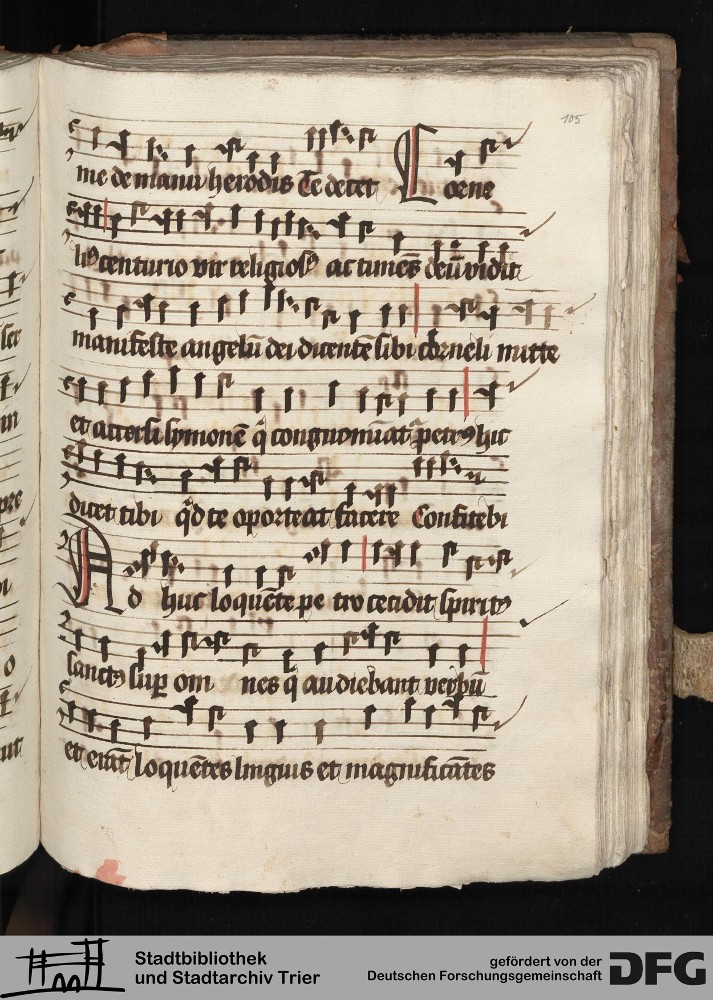 105
me de manu herodis Te decet Corne
liꝰ centurio vir religiosꝰ ac timēs deū vidit
manifeste angelū dei dicentē sibi corneli mitte
et accersi symonē q̄ cognomīat᷑ petrꝰ hic
dicet tibi qͥd te oporteat facere Confitebi
Ad huc loquēte pe tro cecidit spiritꝰ
sanctꝰ suꝑ om nes q̄ audiebant verbū
et erāt loquētes linguis et magnificātes
ser
in
pre
o
ut
Stadtbibliothek
und Stadtarchiv Trier
gefördert von der
Deutschen Forschungsgemeinschaft
DFG